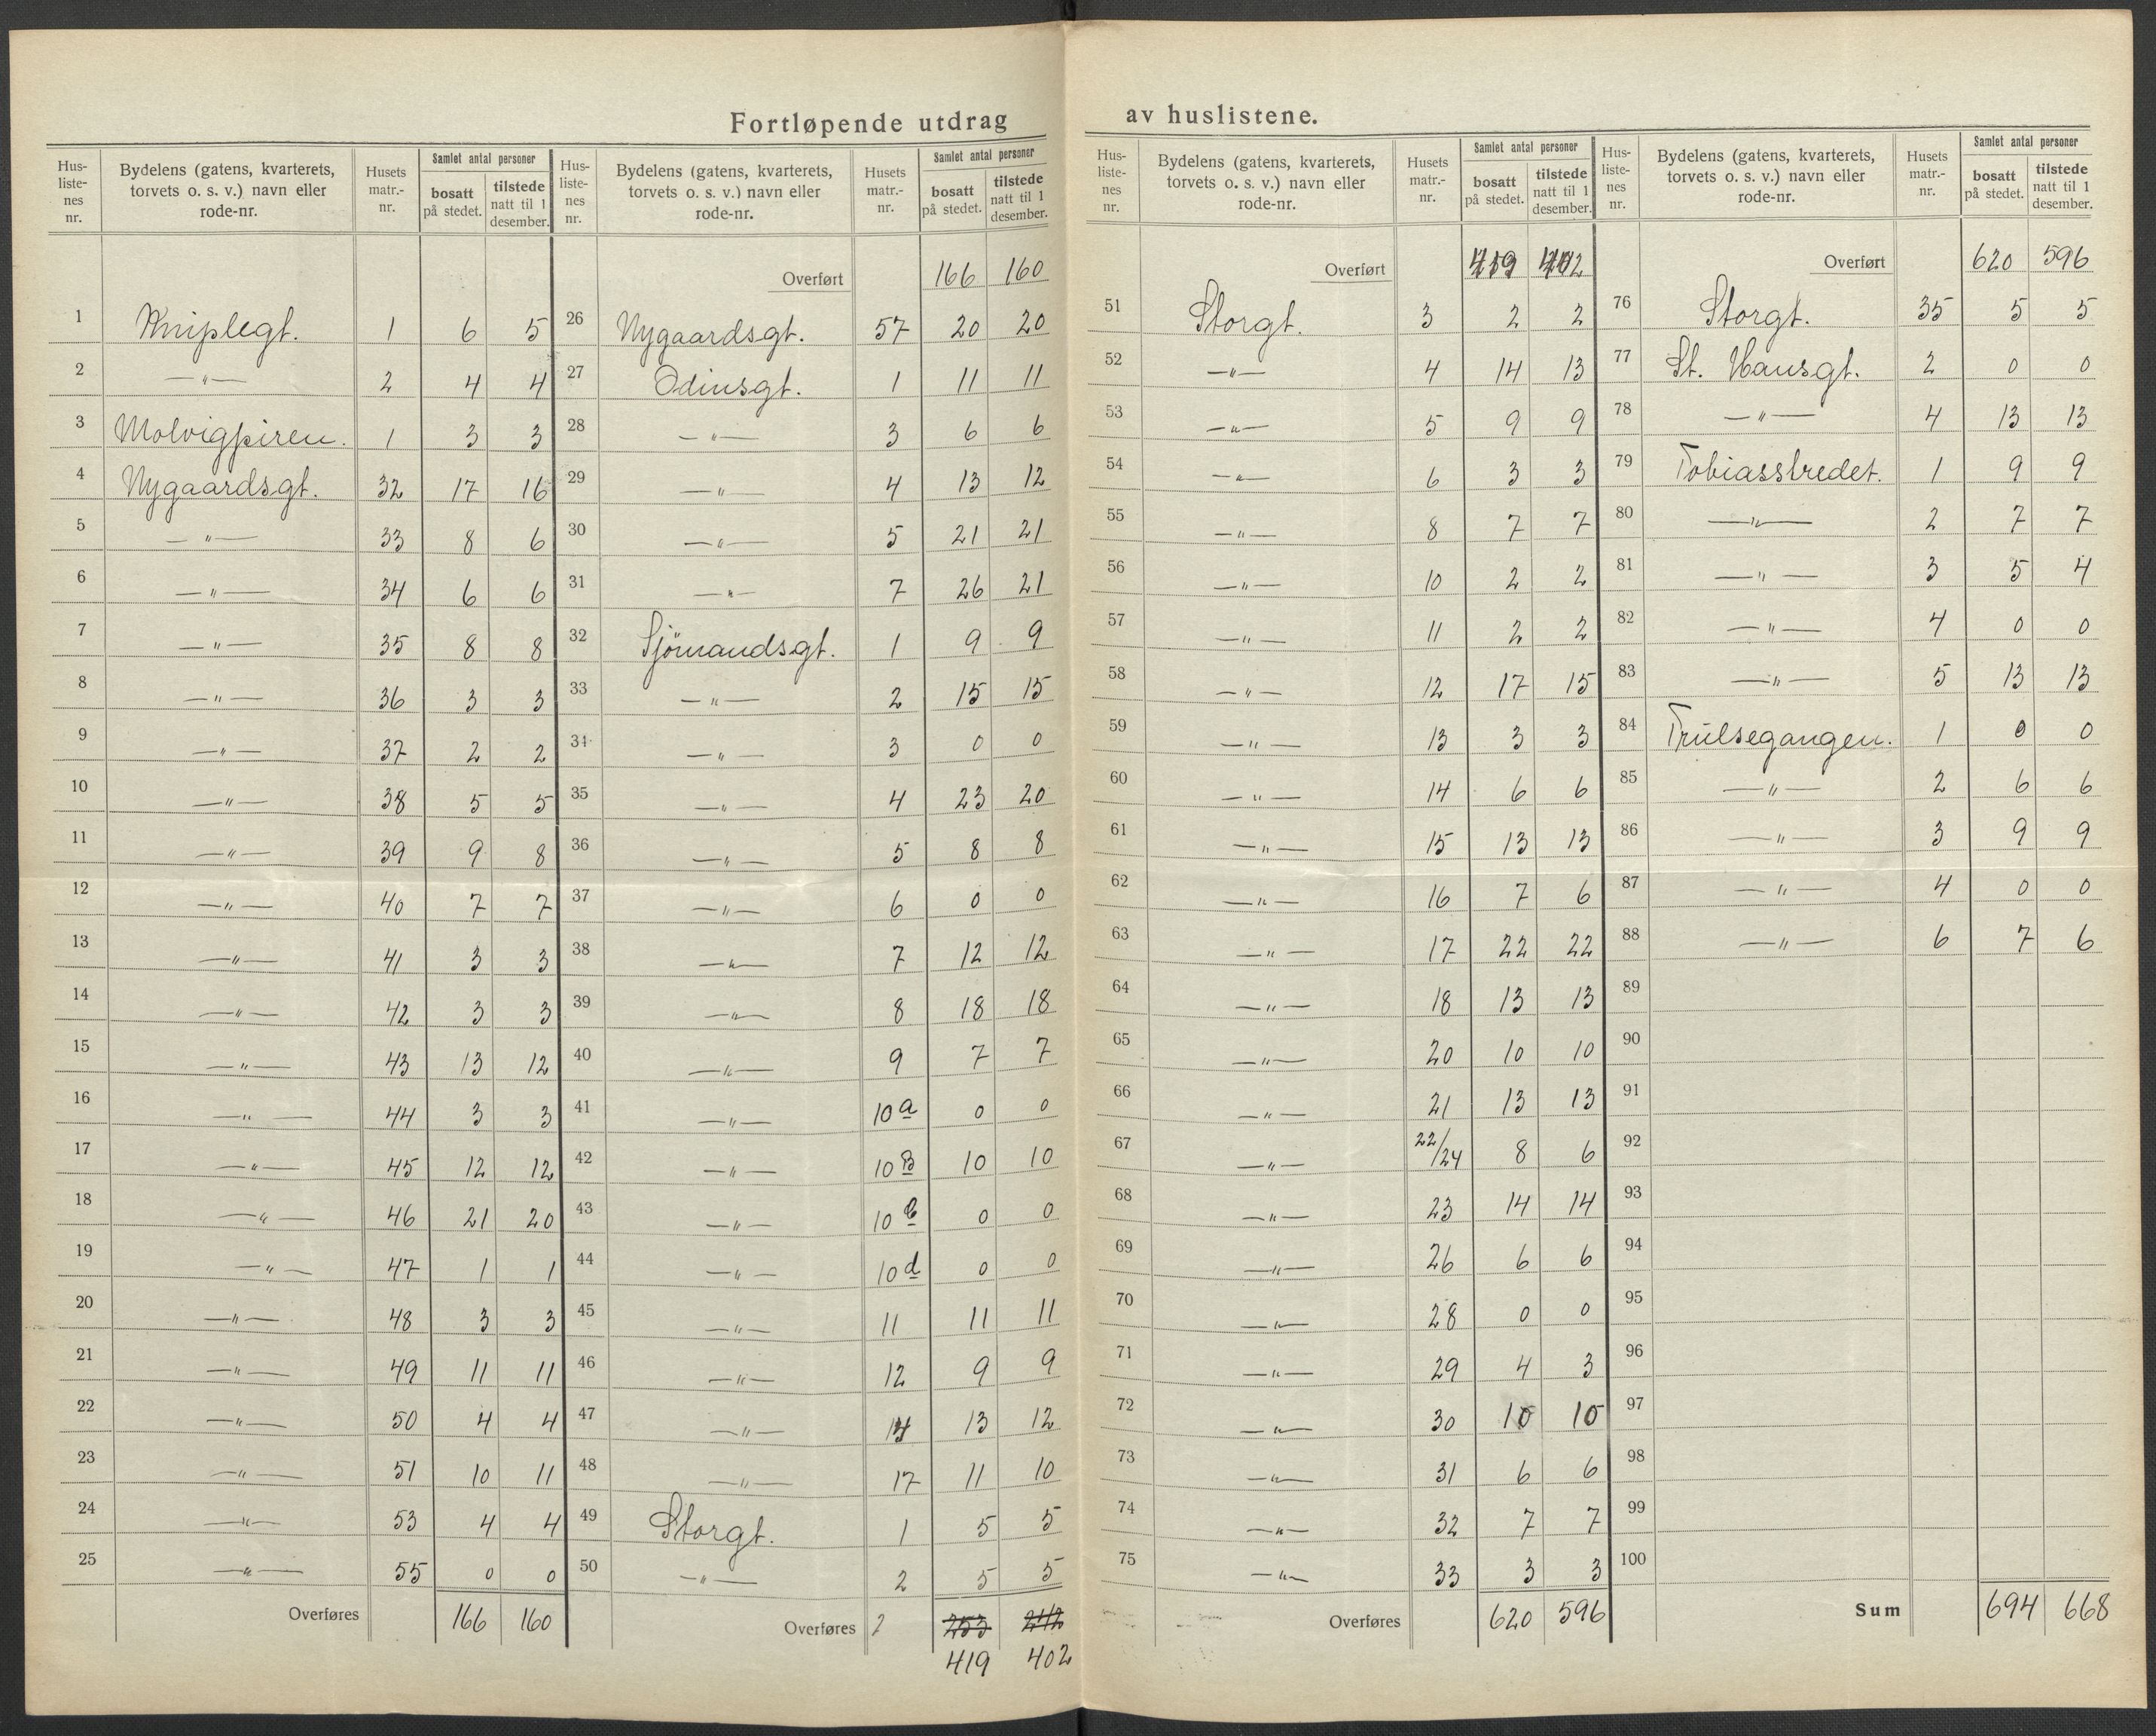 Fortløpende utdrag av huslistene.
Hus-liste-nes nr. | Bydelens (gatens, kvarterets, torvets o. s. v.) navn eller rode-nr. | Husets matr.-nr. | Samlet antal personer | bosatt på stedet. | tilstede natt til 1 desember.
1 Kniplegt. 1 6 5
2 —"— 2 4 4
3 Molvigpiren. 1 3 3
4 Nygaardsgt. 32 17 16
5 —"— 33 8 6
6 —"— 34 6 6
7 —"— 35 8 8
8 —"— 36 3 3
9 —"— 37 2 2
10 —"— 38 5 5
11 —"— 39 9 8
12 —"— 40 7 7
13 —"— 41 3 3
14 —"— 42 3 3
15 —"— 43 13 12
16 —"— 44 3 3
17 —"— 45 12 12
18 —"— 46 21 20
19 —"— 47 1 1
20 —"— 48 3 3
21 —"— 49 11 11
22 —"— 50 4 4
23 —"— 51 10 11
24 —"— 53 4 4
25 —"— 55 0 0
Overføres 166 160
Hus-liste-nes nr. | Bydelens (gatens, kvarterets, torvets o. s. v.) navn eller rode-nr. | Husets matr.-nr. | Samlet antal personer | bosatt på stedet. | tilstede natt til 1 desember.
Overført 166 160
26 Nygaardsgt. 57 20 20
27 Odinsgt. 1 11 11
28 —"— 3 6 6
29 —"— 4 13 12
30 —"— 5 21 21
31 —"— 7 26 21
32 Sjömandsgt. 1 9 9
33 —"— 2 15 15
34 —"— 3 0 0
35 —"— 4 23 20
36 —"— 5 8 8
37 —"— 6 0 0
38 —"— 7 12 12
39 —"— 8 18 18
40 —"— 9 7 7
41 —"— 10a 0 0
42 —"— 10B 10 10
43 —"— 10c 0 0
44 —"— 10d 0 0
45 —"— 11 11 11
46 —"— 12 9 9
47 —"— 14 13 12
48 —"— 17 11 10
49 Storgt. 1 5 5
50 —"— 2 5 5
Overføres 2 253 242
419 402
Hus-liste-nes nr. | Bydelens (gatens, kvarterets, torvets o. s. v.) navn eller rode-nr. | Husets matr.-nr. | Samlet antal personer | bosatt på stedet. | tilstede natt til 1 desember.
Overført 419 402
51 Storgt. 3 2 2
52 —"— 4 14 13
53 —"— 5 9 9
54 —"— 6 3 3
55 —"— 8 7 7
56 —"— 10 2 2
57 —"— 11 2 2
58 —"— 12 17 15
59 —"— 13 3 3
60 —"— 14 6 6
61 —"— 15 13 13
62 —"— 16 7 6
63 —"— 17 22 22
64 —"— 18 13 13
65 —"— 20 10 10
66 —"— 21 13 13
67 —"— 22/24 8 6
68 —"— 23 14 14
69 —"— 26 6 6
70 —"— 28 0 0
71 —"— 29 4 3
72 —"— 30 10 10
73 —"— 31 6 6
74 —"— 32 7 7
75 —"— 33 3 3
Overføres 620 596
Hus-liste-nes nr. | Bydelens (gatens, kvarterets, torvets o. s. v.) navn eller rode-nr. | Husets matr.-nr. | Samlet antal personer | bosatt på stedet. | tilstede natt til 1 desember.
Overført 620 596
76 Storgt. 35 5 5
77 St. Hansgt. 2 0 0
78 —"— 4 13 13
79 Tobiasstredet. 1 9 9
80 —"— 2 7 7
81 —"— 3 5 4
82 —"— 4 0 0
83 —"— 5 13 13
84 Trulsegangen. 1 0 0
85 —"— 2 6 6
86 —"— 3 9 9
87 —"— 4 0 0
88 —"— 6 7 6
89
90
91
92
93
94
95
96
97
98
99
100
Sum 694 668